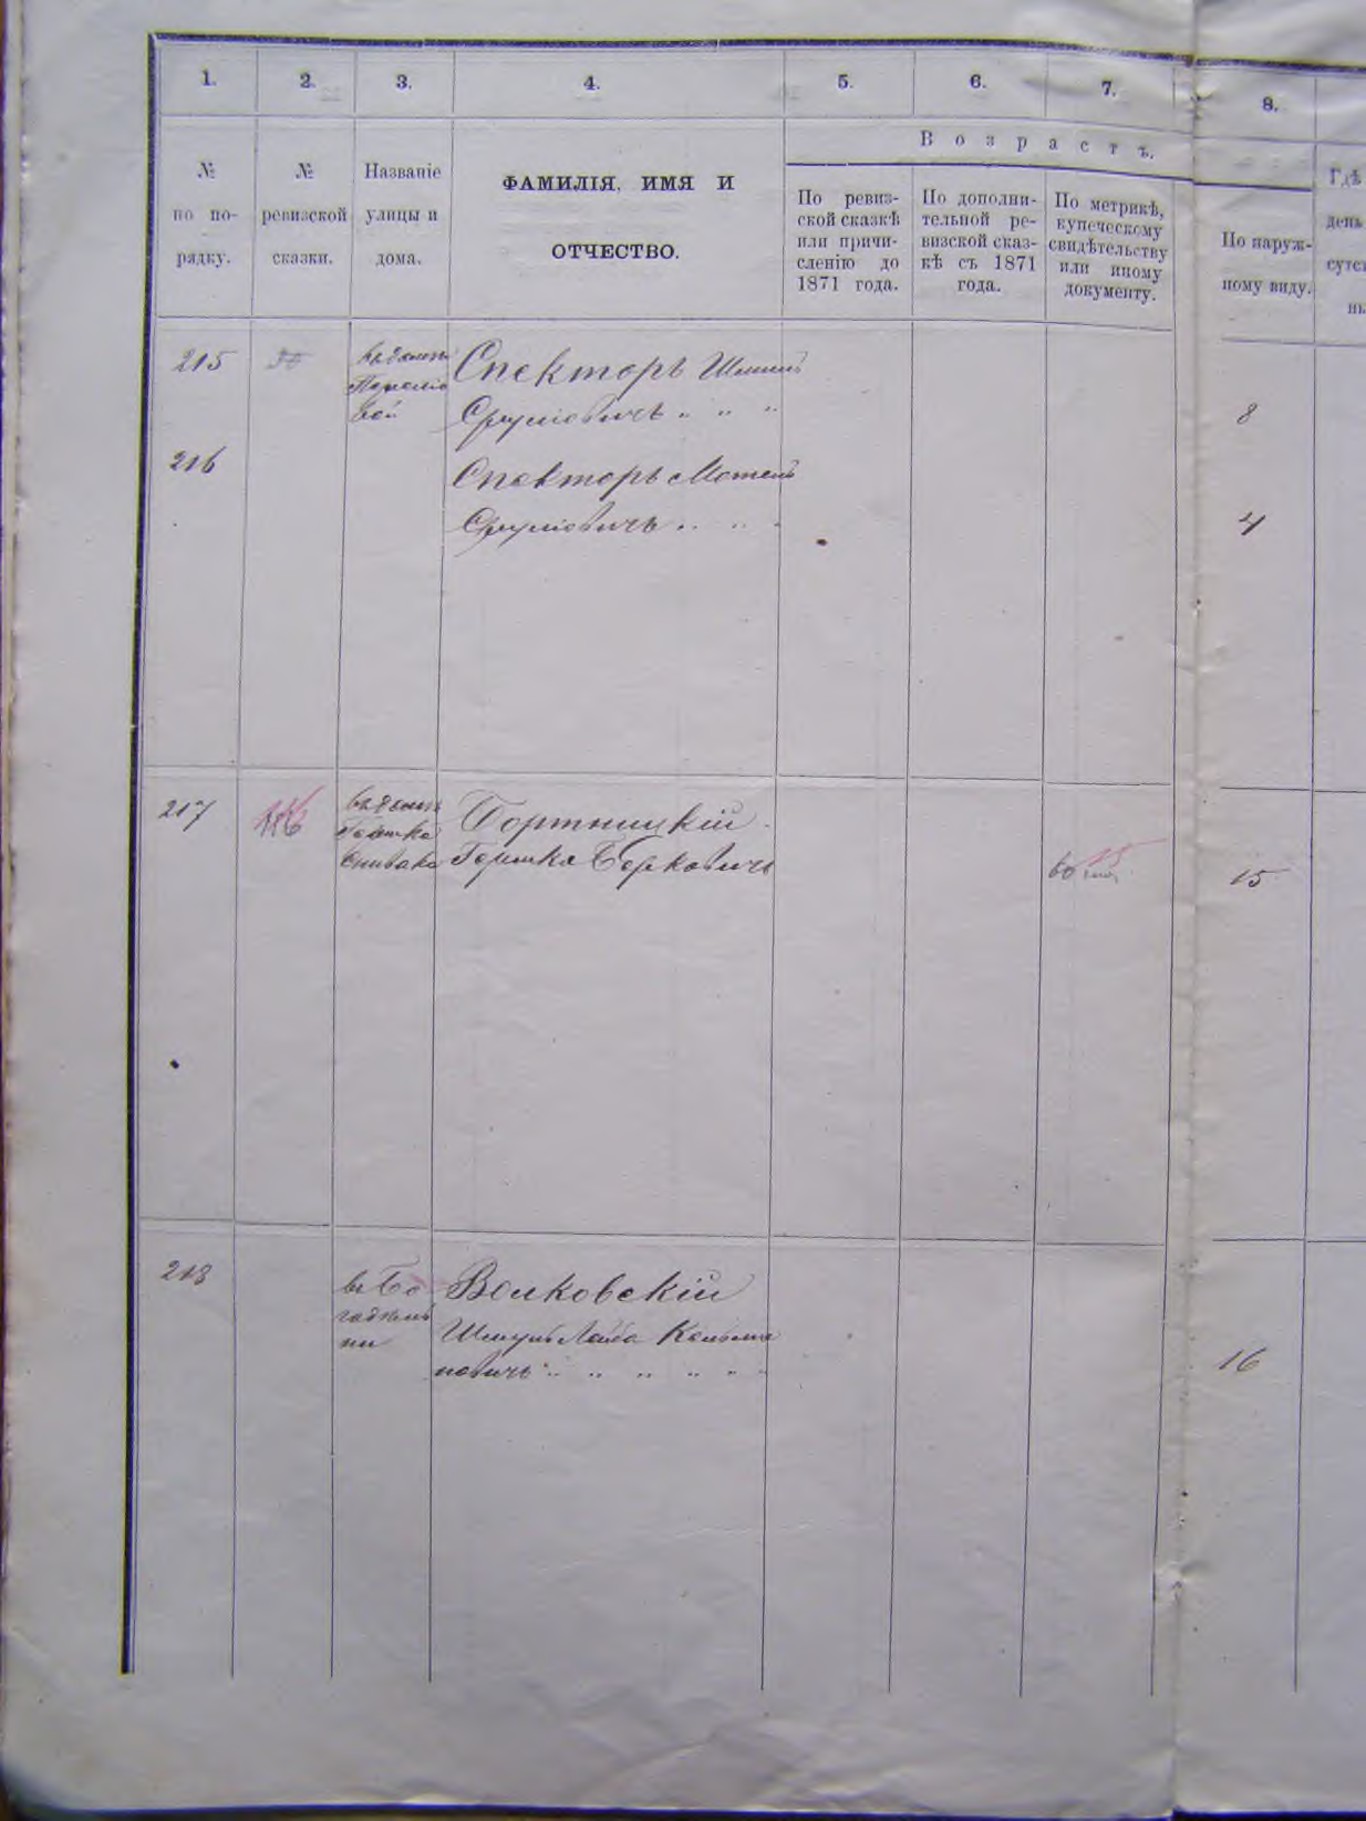 1. 2. 3. 4. 5. 6. 7. 8.
Возрастъ.
№
по по-
рядку.
№
ревизской
сказки.
Названіе
улицы и
дома.
ФАМИЛІЯ, ИМЯ И
ОТЧЕСТВО.
По ревиз-
ской сказкѣ
или причи-
сленію до
1871 года.
По дополни-
тельной ре-
визской сказ-
кѣ съ 1871
года.
По метрикѣ,
купеческому
свидѣтельству
или иному
документу.
По наруж-
ному виду.
Гдѣ
день
сутс
215
Спекторъ
Сруліовичъ
8
216
Спекторъ Мотель
Сруліовичъ
4
217
Портницкій
Гершко Берковичъ
15
15
218
въ Бо
гадѣль
ни
Волковскій
Шмуль Лейба Кельма
новичъ
16